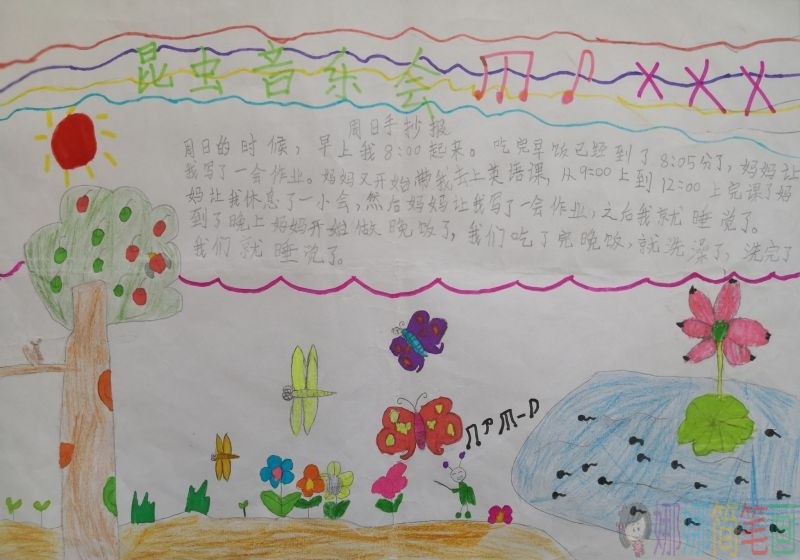 昆虫音乐会
周日手抄报
周日的时候，早上我8:00起来。吃完早饭已经到了8:05分了，妈妈让
我写了一会作业。妈妈又开始带我去上英语课，从9:00上到12:00上完课了妈
妈让我休息了一小会，然后妈妈让我写了一会作业，之后我就睡觉了。
到了晚上妈妈开始做晚饭了，我们吃了完晚饭，就洗澡了，洗完了
我们就睡觉了。
简笔画